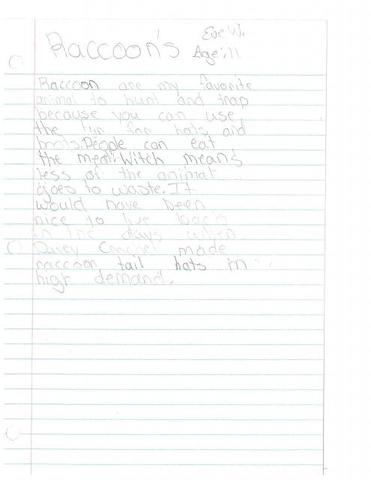 Eve W.
Raccoon's Age: 11
Raccoon are my favorite
animal to hunt and trap
because you can use
the fur for hats and
boots. People can eat
the meat. Witch means
less of the animal
goes to waste. It
would have been
nice to live back
in the days when
Davey made
raccoon tail hats in
high demand.